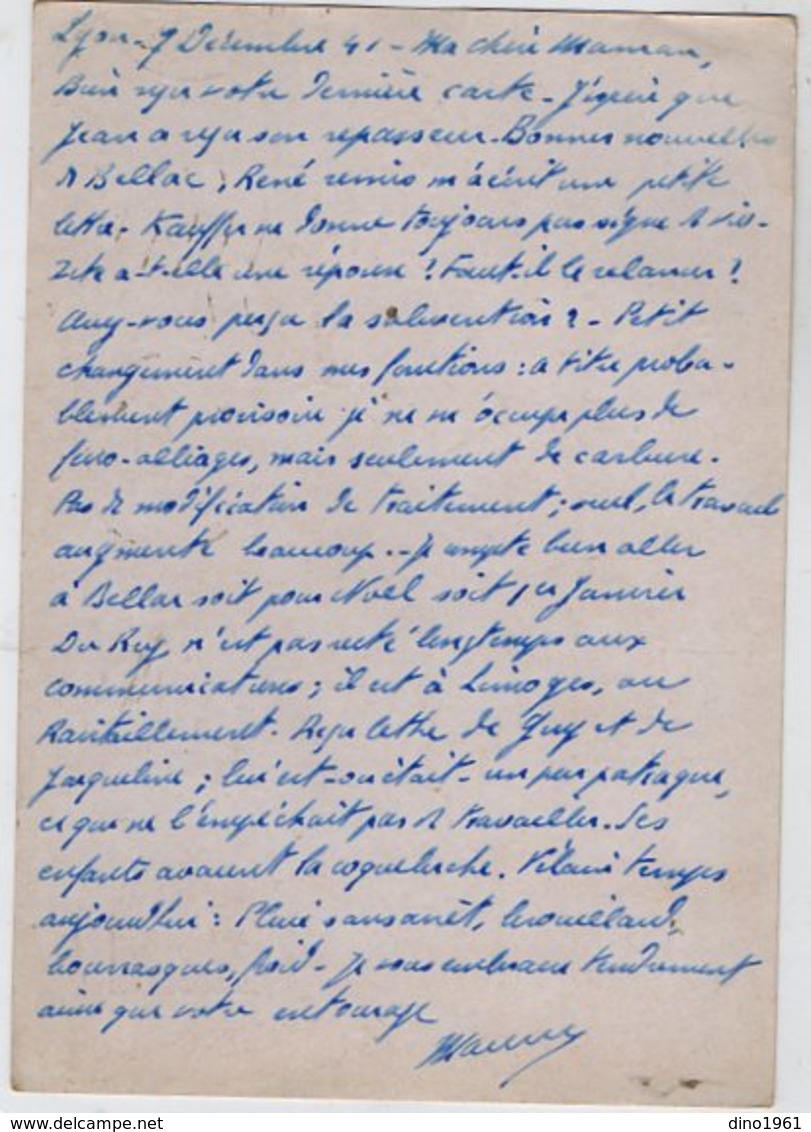 Lyon - 7 Décembre 41 - Ma chère Maman,
Bien reçu votre dernière carte - J'espère que
Jean a reçu son repasseur. Bonnes nouvelles
de Bellac ; René remis m'a écrit une petite
lettre - Kauffer ne donne toujours pas signe de vie -
a-t-elle une réponse ? Faut-il le relancer ?
Avez-vous perçu la subvention ? - Petit
changement dans mes fonctions : à titre proba-
blement provisoire je ne m'occupe plus de
ferro-alliages, mais seulement de carbure -
Pas de modification de traitement ; seul, le travail
augmente beaucoup .. - Je compte bien aller
à Bellac soit pour Noël soit 1er Janvier
Du n'est pas resté longtemps aux
communications ; il est à Limoges, au
Ravitaillement - Reçu lettre de Guy et de
Jacqueline ; lui est - ou était - un peu patraque,
ce qui ne l'empêchait pas de travailler. Ses
enfants avaient la coqueluche. Vilain temps
aujourd'hui : Pluie sans arrêt, brouillard,
bourrasques, froid - Je vous embrasse tendrement
ainsi que votre entourage
dino1961